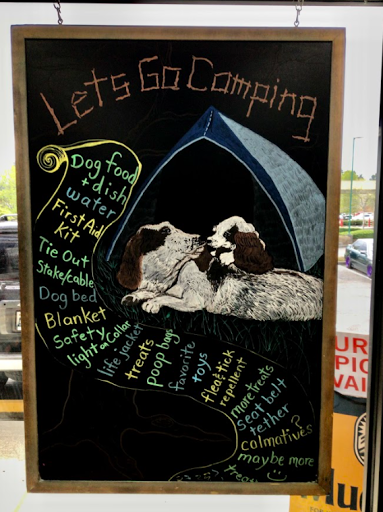 Lets Go Camping
Dog food
+ dish
water
First Aid
Kit
Tie Out
Stake/cable
Dog bed
Blanket
Safety
light or Collar
life jacket
treats
poop bags
favorite
toys
flea & tick
repellent
more treats
seat belt
tether
calmatives?
maybe more
treats
UR
PIC
WAI